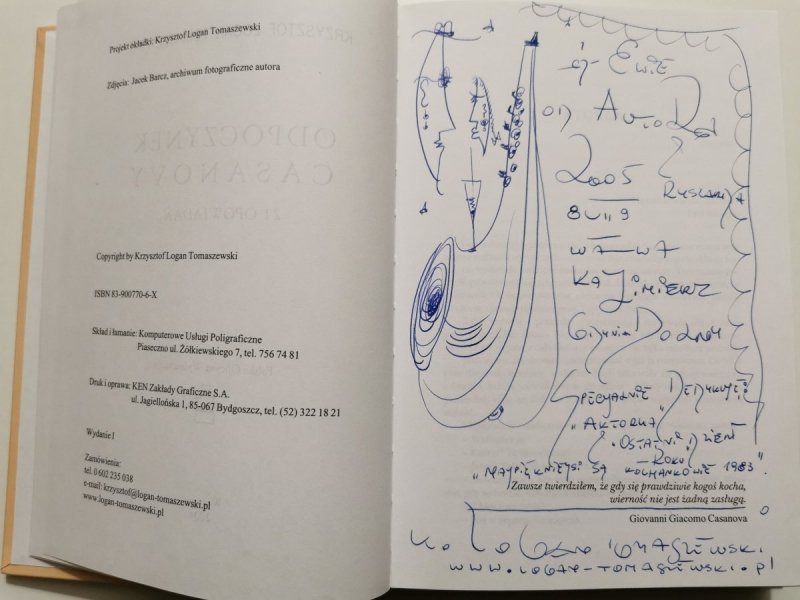 Projekt okładki: Krzysztof Logan Tomaszewski
Zdjęcia: Jacek Barcz, archiwum fotograficzne autora
ODPOCZYNEK
CASANOVY
21 OPOWIADAŃ
Copyright by Krzysztof Logan Tomaszewski
ISBN 83-900770-6-X
Skład i łamanie: Komputerowe Usługi Poligraficzne
Piaseczno ul. Żółkiewskiego 7, tel. 756 74 81
Druk i oprawa: KEN Zakłady Graficzne S.A.
ul. Jagiellońska 1, 85-067 Bydgoszcz, tel. (52) 322 18 21
Wydanie I
Zamówienia:
tel. 0 602 235 038
e-mail: krzysztof@logan-tomaszewski.pl
www.logan-tomaszewski.pl
Ewie
od
2005
WA-WA
KAZIMIERZ
SPECJALNIE DEDYKUJĘ:
"AKTORKA
OSTATNI DZIEŃ
ROKU
"NAJPIĘKNIEJSI SĄ KOCHANKOWIE 1983"
Zawsze twierdziłem, że gdy się prawdziwie kogoś kocha,
wierność nie jest żadną zasługą.
Giovanni Giacomo Casanova
TOMASZEWSKI
WWW.LOGAN-TOMASZEWSKI.PL